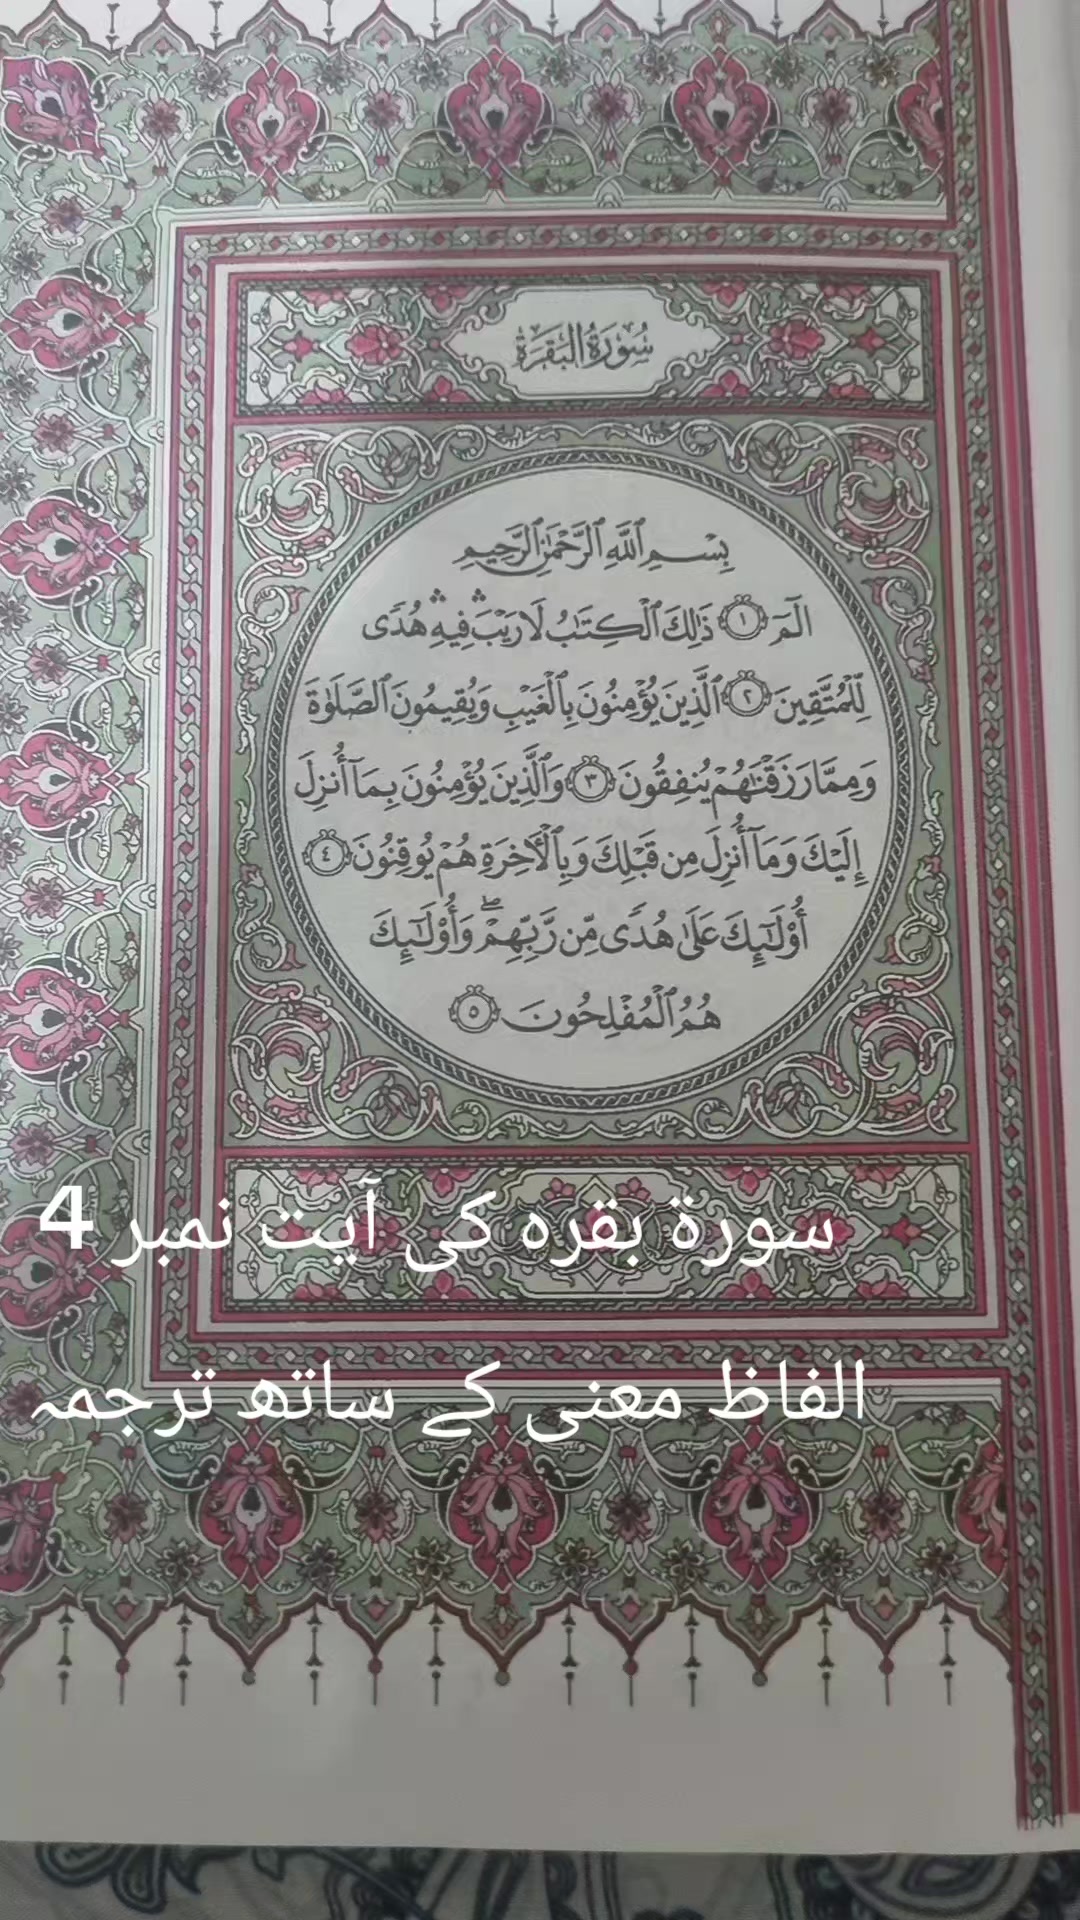 سُورَةُ البَقَرَةِ
بِسْمِ ٱللَّهِ ٱلرَّحْمَٰنِ ٱلرَّحِيمِ
الٓمٓ ١ ذَٰلِكَ ٱلْكِتَٰبُ لَا رَيْبَ ۛ فِيهِ ۛ هُدًى
لِّلْمُتَّقِينَ ٢ ٱلَّذِينَ يُؤْمِنُونَ بِٱلْغَيْبِ وَيُقِيمُونَ ٱلصَّلَوٰةَ
وَمِمَّا رَزَقْنَٰهُمْ يُنفِقُونَ ٣ وَٱلَّذِينَ يُؤْمِنُونَ بِمَآ أُنزِلَ
إِلَيْكَ وَمَآ أُنزِلَ مِن قَبْلِكَ وَبِٱلْأَخِرَةِ هُمْ يُوقِنُونَ ٤
أُوْلَٰٓئِكَ عَلَىٰ هُدًى مِّن رَّبِّهِمْ ۖ وَأُوْلَٰٓئِكَ
هُمُ ٱلْمُفْلِحُونَ ٥
سورة بقرہ کی آیت نمبر 4
الفاظ معنی کے ساتھ ترجمہ